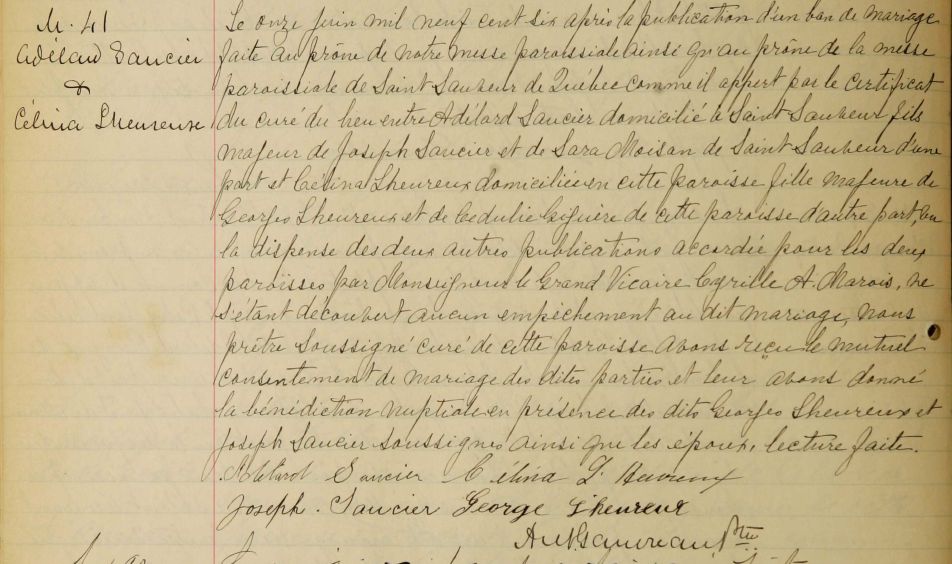 M. 41
Adélard Saucier
&
Célina Lheureux
Le onze juin mil neuf cent six après la publication d'un ban de mariage
faite au prône de notre messe paroissiale ainsi qu'au prône de la messe
paroissiale de Saint Sauveur de Québec comme il appert par le certificat
du curé du lieu entre Adélard Saucier domicilié à Saint Sauveur fils
majeur de Joseph Saucier et de Sara Moisan de Saint Sauveur d'une
part et Célina Lheureux domiciliée en cette paroisse fille majeure de
Georges Lheureux et de Cédulie Giguère de cette paroisse d'autre part, vu
la dispense des deux autres publications accordée pour les deux
paroisses par Monseigneur le Grand Vicaire Cyrille A. Marois, ne
s'étant découvert aucun empêchement au dit mariage, nous
prêtre soussigné curé de cette paroisse avons reçu le mutuel
consentement de mariage des dites parties et leur avons donné
la bénédiction nuptiale en présence des dits Georges Lheureux et
Joseph Saucier soussignés ainsi que les époux, lecture faite.
Adélard Saucier Célina L'Heureux
Joseph. Saucier George Lheureux
Gauvreau Ptre